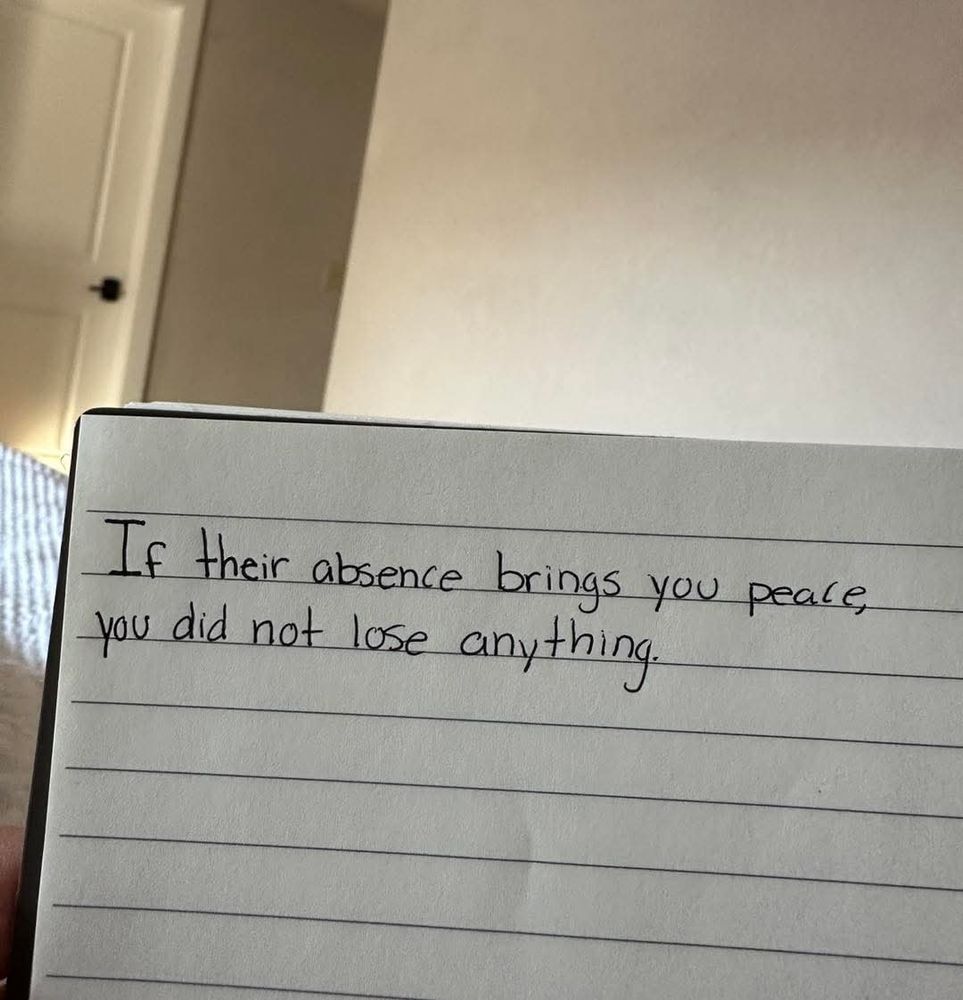 If their absence brings you peace,
you did not lose anything.